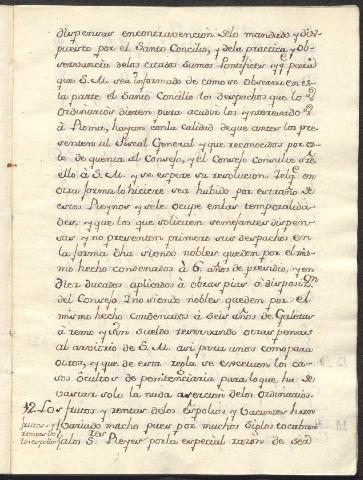 dispensar en contravencion de lo mandado y dis
puesto por el Santo Concilio, y de la practica y ob
servancia de los citados Sumos Pontifices y q para
que S. M. sea informado de como se observa en es
ta parte el Santo Concilio los despachos que los
Ordinarios dieren para acudir los interesados
à Roma, hayan con la calidad de que antes los pre
senten al Fiscal General y que reconocidos por es
te dè quenta al Consejo, y el Consejo consulte s͞re
ello à S. M. y se espere su resolucion. Y el q en
otra forma lo hiciere sea habido por estraño de
estos Reynos y se le ocupe en las temporalida
des, y que los que soliciten semejantes dispen
sas y no presenten primero sus despachos en
la forma dha siendo nobles queden por el mis
mo hecho condenados à 6 años de presidio, y en
diez ducados aplicados à obras pias à disposⁿ
del Consejo. Y no siendo nobles queden por el
mismo hecho condenados à seis años de Galeras
à remo y sin sueldo reservando otras penas
al arvitrio de S. M. asi para unos como para
otros, y que de esta regla se excetuen los ca
sos ôcultos de penitenciaria para lo que ha de
vastar solo la nuda asercion de los Ordinarios.
12. Los frutos y rentas de los Espolios y Vacantes han
frutos y rentas de los espolios
variado mucho pues por muchos siglos tocaban
à los S.res Reyes por la especial razon de ser